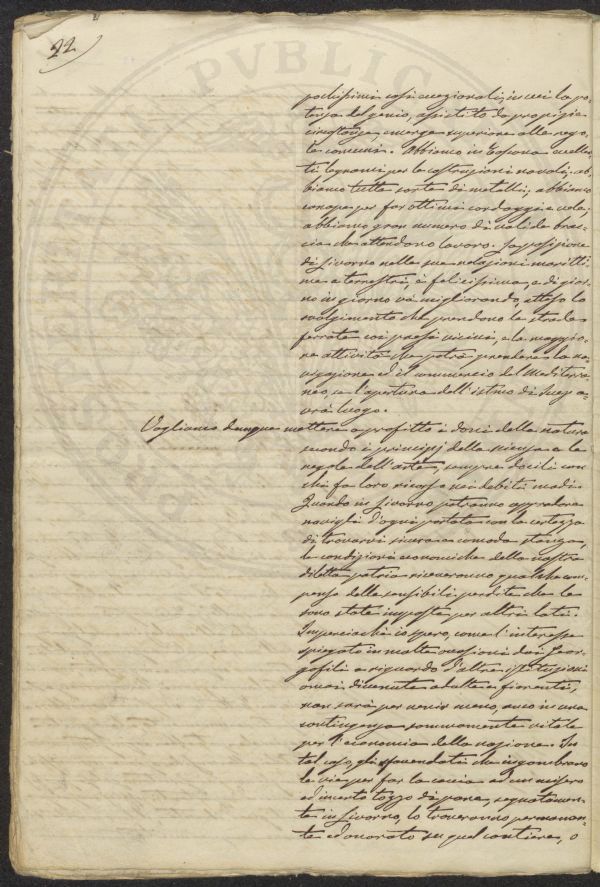 22
pochissimi casi eccezionali, in cui la po-
tenza del genio, assistito da propizie
circostanze, emerge superiore alle rego-
le comuni. Abbiamo in Toscana eccellen-
ti legnami per le costruzioni navali; ab-
biamo tutte sorte di metalli; abbiamo
canape per far ottimi cordaggi e vele;
abbiamo gran numero di valide brac-
cia che attendono lavoro. La posizione
di Livorno nelle sue relazioni maritti-
me e terrestri, è felicissima, e di gior-
no in giorno va migliorando, atteso lo
svolgimento che prendono le strade
ferrate coi paesi vicini, e la maggio-
re attività che potrà prendere la na-
vigazione ed il commercio del Mediterra-
neo, se l'apertura dell'istmo di Suez a-
vrà luogo.
Vogliamo dunque mettere a profitto i doni della natura
secondo i principj della scienza e le
regole dell'arte, sempre docili con
chi fa loro ricorso nei debiti modi.
Quando in Livorno potranno approdare
navigli d'ogni portata con la certezza
di trovarvi sicura e comoda stanza,
le condizioni economiche della nostra
diletta patria riceveranno qualche com-
penso delle sensibili perdite che le
sono state imposte per altri lati.
Imperciochè io spero, come l'interesse
spiegato in molte occasioni dai Geor-
gofili a riguardo d'altre istituzioni
omai divenute adulte e fiorenti,
non sarà per venir meno, anco in una
contingenza sommamente vitale
per l'economia della nazione. In
tal caso, gli sfaccendati che ingombrano
le vie per far la caccia ad un misero
ed incerto tozzo di pane, segnatamen-
te in Livorno, lo troveranno permanen-
te ed onorato su quel cantiere, o
PVBLICA